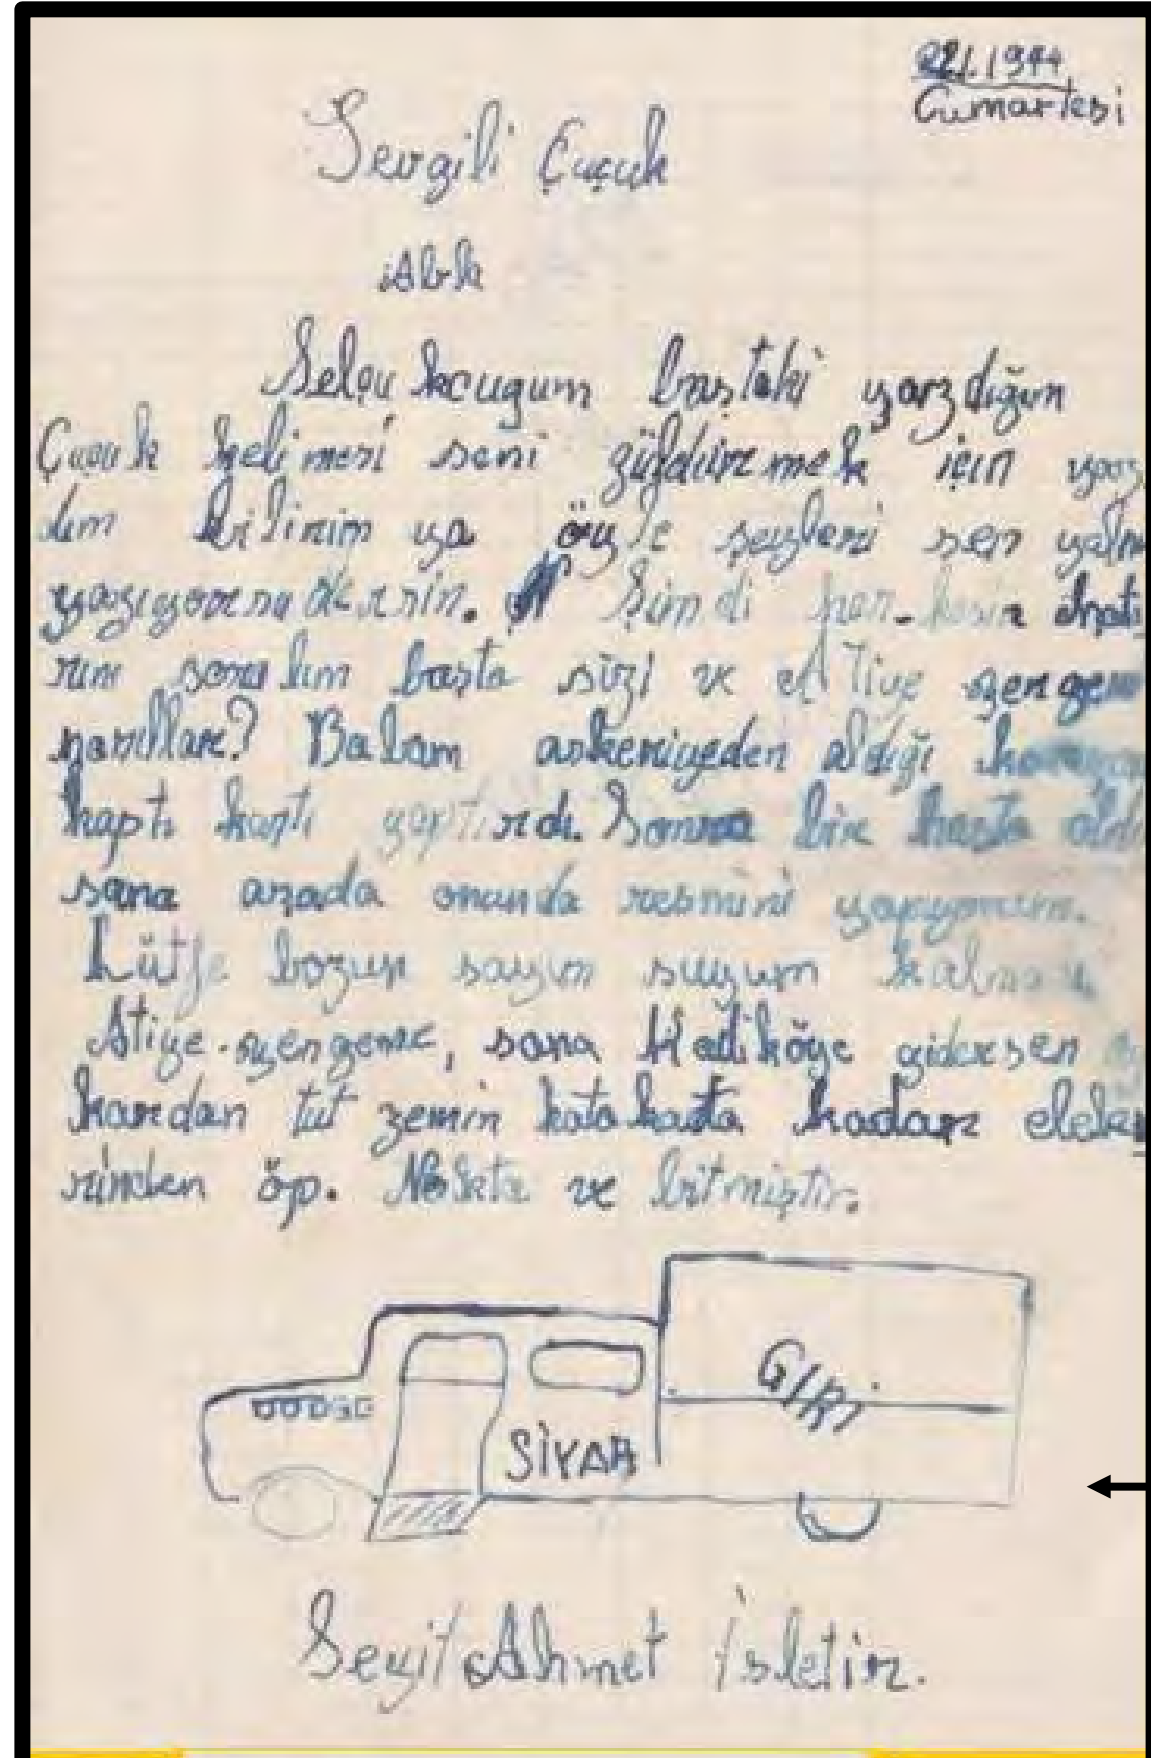 1944
Cumartesi
Sevgili Çuçuk
Selçukcuğum baştaki yazdığım
Çuçuk kelimesi seni güldürmek için yaz
dım bilirim ya öyle şeyleri sen
Şimdi hatı
rını soralım başta sizi ve Atiye yengem
nasıllar? Babam askeriyeden aldığı
kaptı kaçtı yaptırdı. Sonra bir hasta
sana arada onunda resmini yapıyorum.
Lütfe bozun sayın suyum
Atiye yengeme, sana Kadıköye gidersen
kardan tut zemin kata kadar
rinden öp. Nokta ve bitmiştir.
DODGE
SİYAH
GİRİ
SeyitAhmet İşletir.